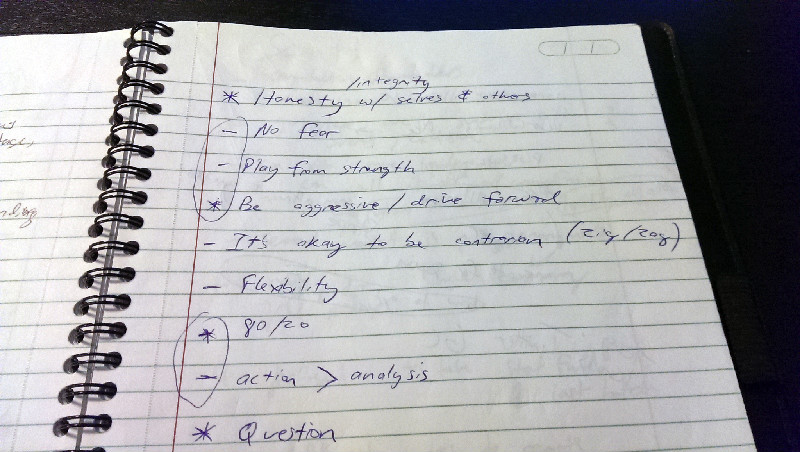 /integrity
* Honesty w/ selves & others
- No fear
- Play from strength
* Be aggressive / drive forward
- It's okay to be contrarian (zig/zag)
- Flexibility
* 80/20
- action > analysis
* Question